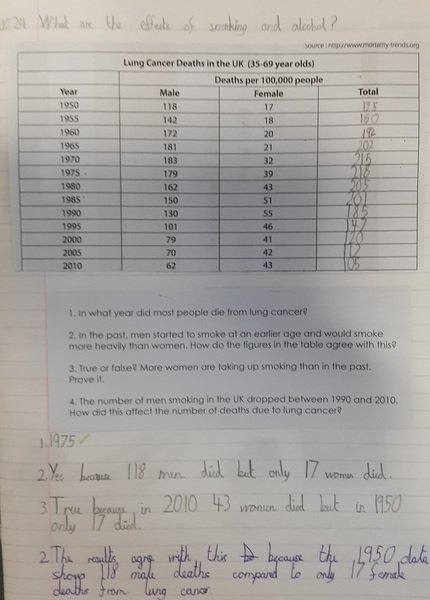 What are the effects of smoking and alcohol?
Source: http://www.mortality-trends.org
Lung Cancer Deaths in the UK (35-69 year olds)
Deaths per 100,000 people
Year Male Female Total
1950 118 17 135
1955 142 18 160
1960 172 20 192
1965 181 21 202
1970 183 32 215
1975 179 39 218
1980 162 43 205
1985 150 51 201
1990 130 55 185
1995 101 46 147
2000 79 41 120
2005 70 42 112
2010 62 43 105
1. In what year did most people die from lung cancer?
2. In the past, men started to smoke at an earlier age and would smoke
more heavily than women. How do the figures in the table agree with this?
3. True or false? More women are taking up smoking than in the past.
Prove it.
4. The number of men smoking in the UK dropped between 1990 and 2010.
How did this affect the number of deaths due to lung cancer?
1. 1975 ✓
2. Yes because 118 men died but only 17 women died.
3 True because in 2010 43 women died but in 1950
only 17 died.
2. The results agree with this because the 1950 data
shows 118 male deaths compared to only 17 female
deaths from lung cancer.